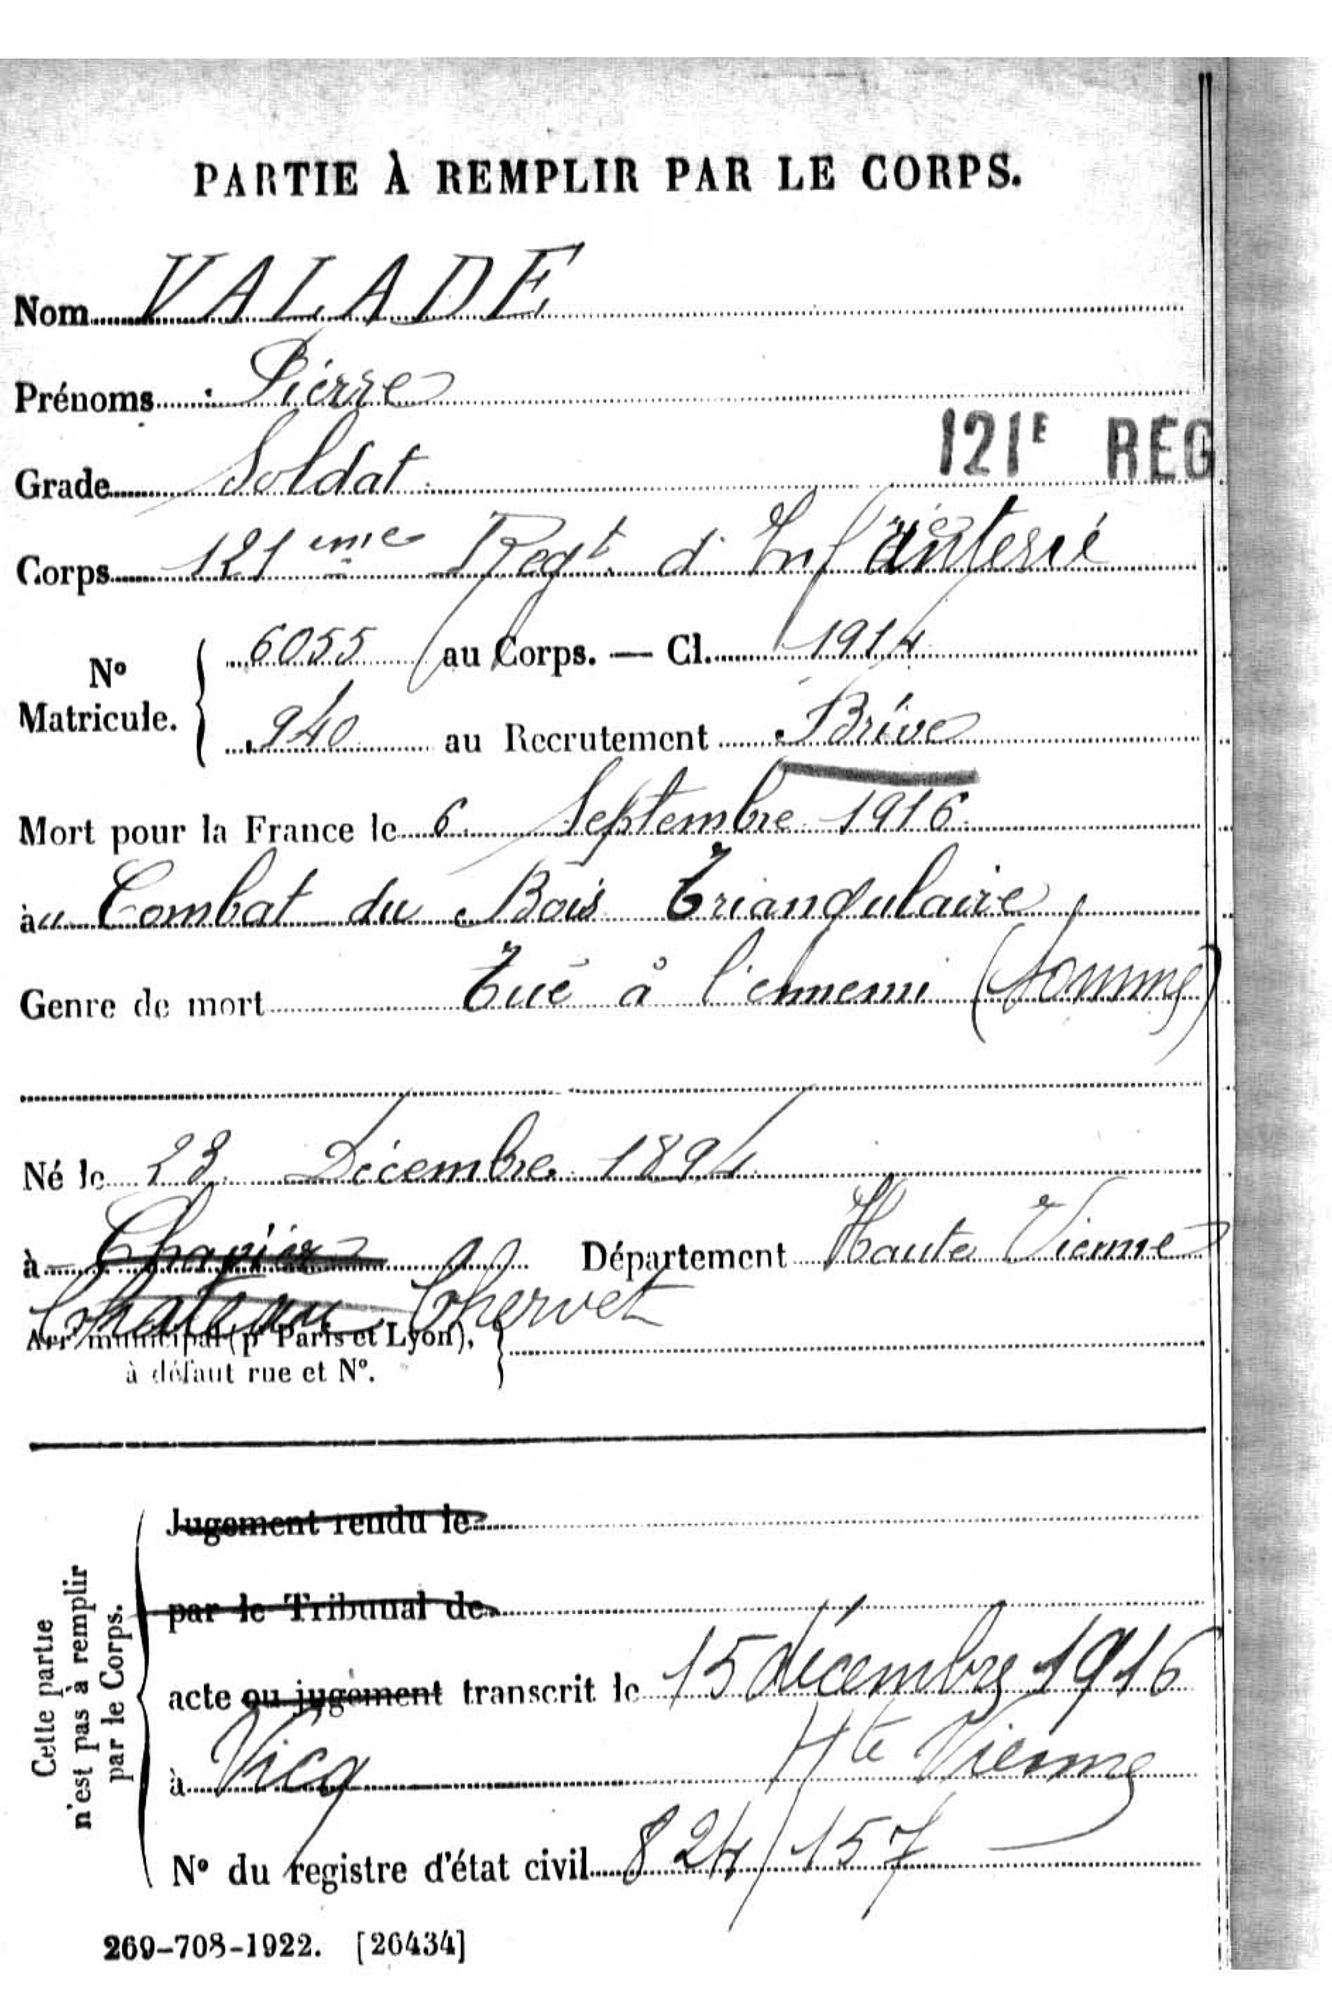 PARTIE À REMPLIR PAR LE CORPS.
Nom VALADE
Prénoms : Pierre
Grade Soldat
121E REG
Corps 121eme Regt. d'Infanterie
No Matricule. { 6055 au Corps. — Cl. 1914
940 au Recrutement Brive
Mort pour la France le 6 Septembre 1916
àu Combat du Bois Triangulaire
Genre de mort Tué à l'ennemi (Somme)
Né le 23 Décembre 1894
à Département Haute Vienne
Château Chervet
Arrt municipal (pr Paris et Lyon), }
à défaut rue et No.
Cette partie
n'est pas à remplir
par le Corps.
Jugement rendu le
par le Tribunal de
acte ou jugement transcrit le 15 décembre 1916
à Vicq Hte Vienne
No du registre d'état civil 824/157
269-708-1922. [26434]